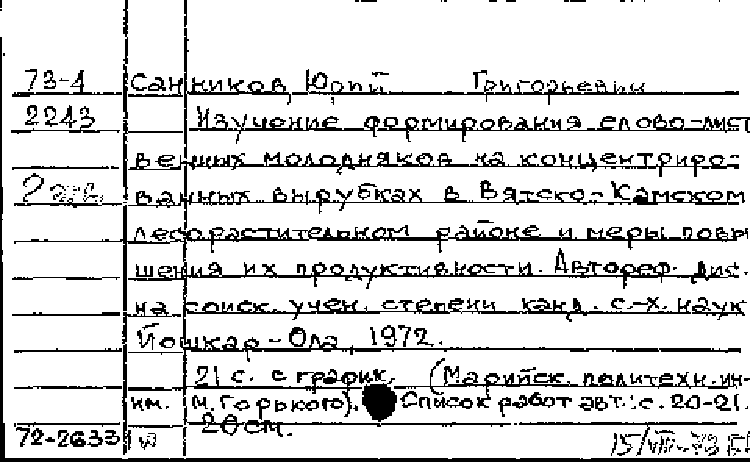 73-4 Санников, Юрий Григорьевич
2243 Изучение формирования елово-лист
венных молодняков на концентриро-
2 экв. ванных вырубках в Вятско-Камском
лесорастительном районе и меры повы
шения их продуктивности. Автореф. дис.
на соиск. учен. степени канд. с.-х. наук
Йошкар-Ола, 1972.
21 с. с график. (Марийск. политехн. ин-
им. М. Горького). Список работ авт.: с. 20-21.
72-2633 20 см.
15/VIII-73